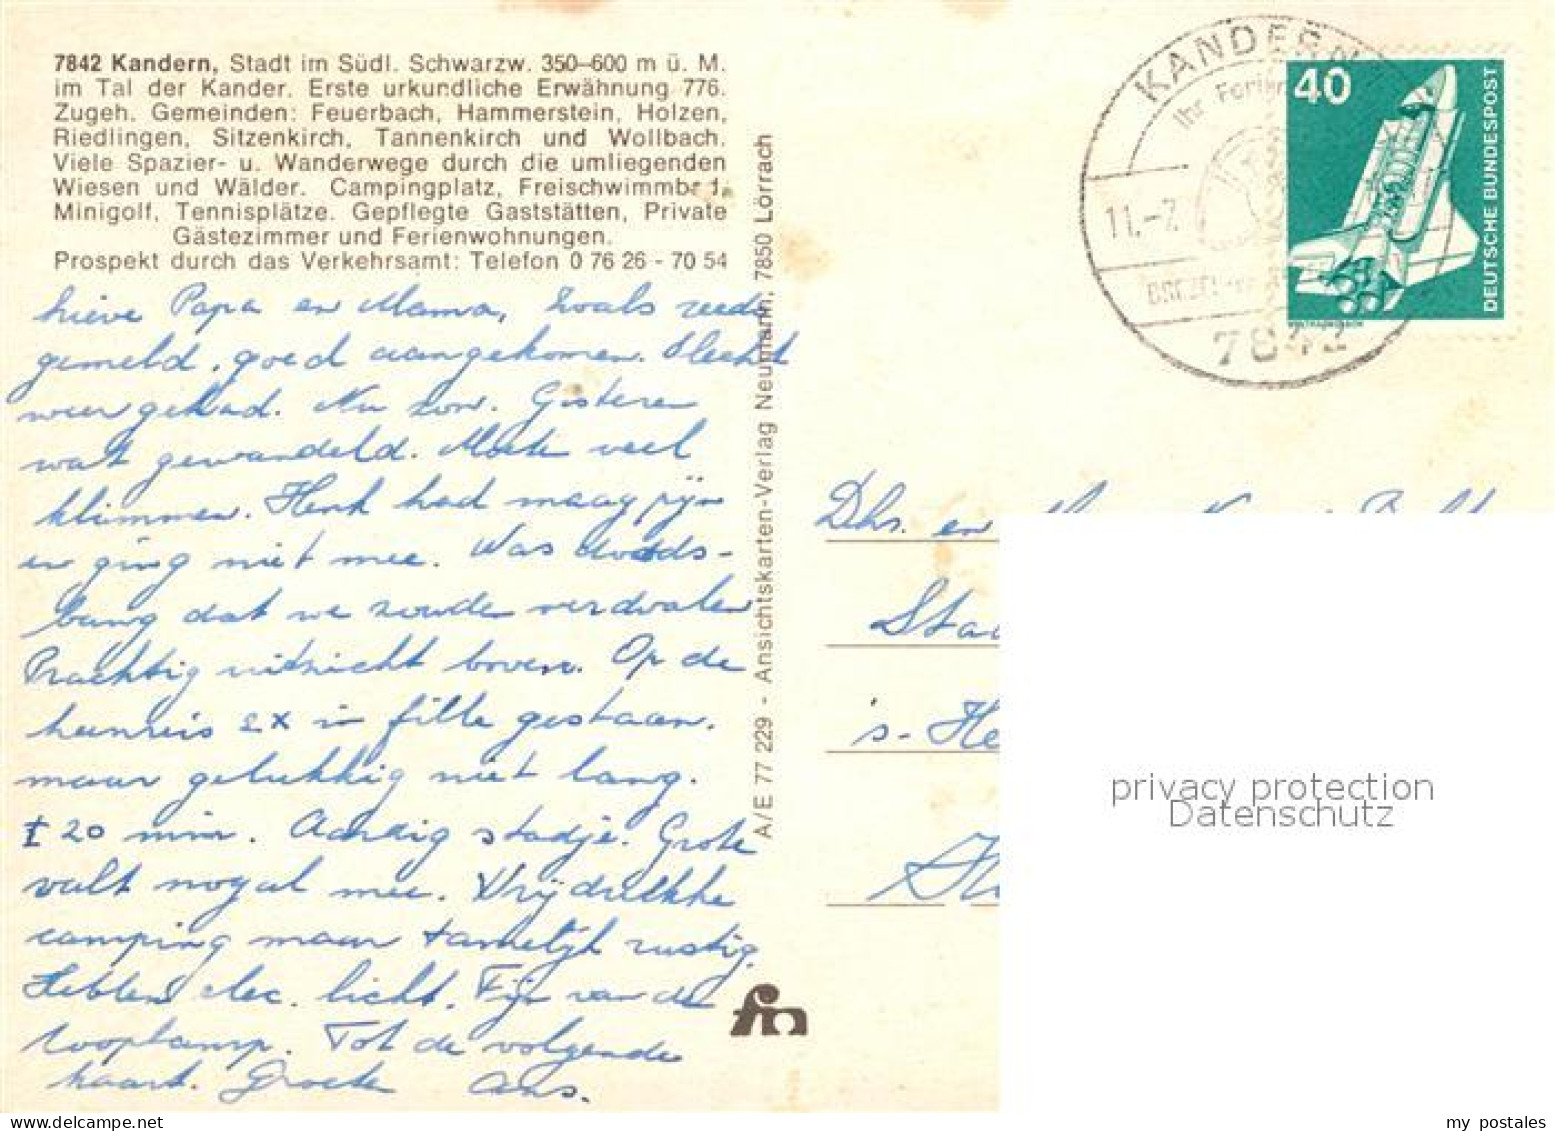 7842 Kandern, Stadt im Südl. Schwarzw. 350–600 m ü. M.
im Tal der Kander. Erste urkundliche Erwähnung 776.
Zugeh. Gemeinden: Feuerbach, Hammerstein, Holzen,
Riedlingen, Sitzenkirch, Tannenkirch und Wollbach.
Viele Spazier- u. Wanderwege durch die umliegenden
Wiesen und Wälder. Campingplatz, Freischwimmbad,
Minigolf, Tennisplätze. Gepflegte Gaststätten, Private
Gästezimmer und Ferienwohnungen.
Prospekt durch das Verkehrsamt: Telefon 0 76 26 - 70 54
Lieve Papa en Mama, Zoals reeds
gemeld, goed aangekomen. Slecht
weer gehad. Nu zon. Gisteren
wat gewandeld. Moete veel
klimmen. Henk had maag pijn
en ging niet mee. Was doods-
bang dat we zoude verdwalen
Prachtig uitzicht boven. Op de
heenreis 2x in fille gestaan.
maar gelukkig niet lang.
± 20 min. Aardig stadje. Grote
valt nogal mee. Vrij drukke
camping maar tamelijk rustig.
Hebben elec. licht. Fijn van de
looplamp. Tot de volgende
kaart. Groete Ans.
A/E 77 229 - Ansichtskarten-Verlag Neumann, 7850 Lörrach
fn
KANDERN
Ihr Ferien
11.-7.
7842
40
DEUTSCHE BUNDESPOST
Dhr. en
Staa
's-He
privacy protection
Datenschutz
my postales